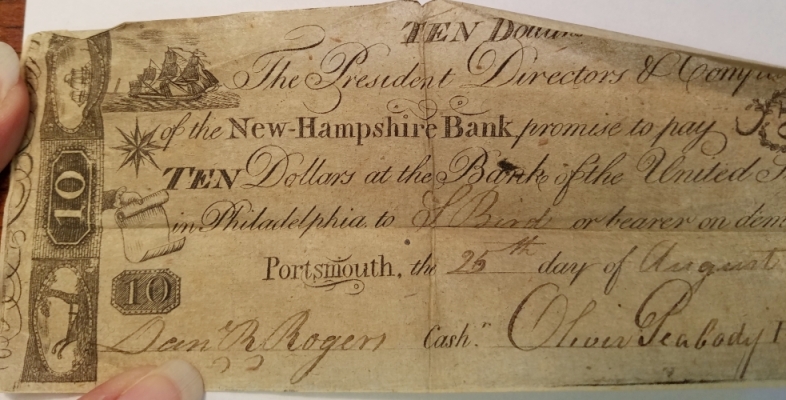 TEN Dollars
The President Directors & Compa
of the New-Hampshire Bank promise to pay
TEN Dollars at the Bank of the United S
in Philadelphia to S Bird or bearer on dem
10
Portsmouth, the 25th day of August
10
Dan R Rogers Cash.r Oliver Peabody P